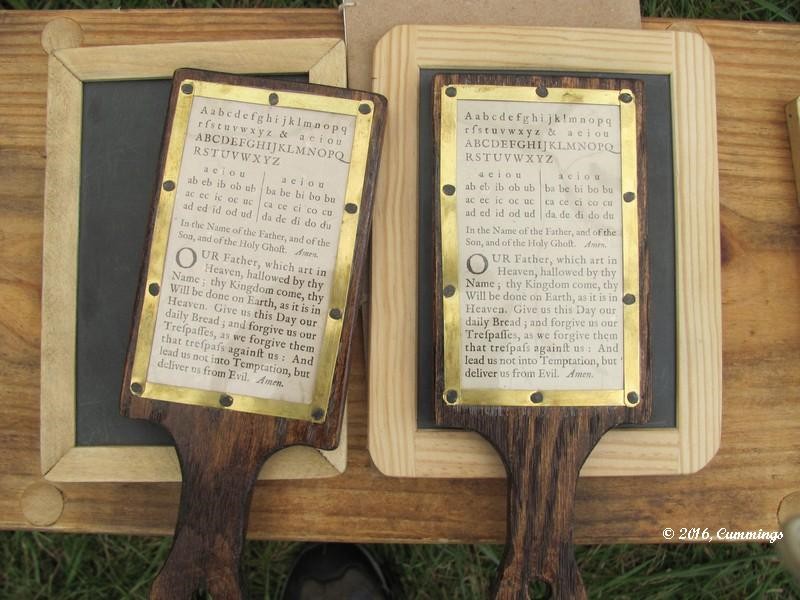 A a b c d e f g h i j k l m n o p q
r ſ s t u v w x y z & a e i o u
A B C D E F G H I J K L M N O P Q
R S T U V W X Y Z
a e i o u a e i o u
ab eb ib ob ub ba be bi bo bu
ac ec ic oc uc ca ce ci co cu
ad ed id od ud da de di do du
In the Name of the Father, and of the
Son, and of the Holy Ghoſt. Amen.
OUR Father, which art in
Heaven, hallowed by thy
Name ; thy Kingdom come, thy
Will be done on Earth, as it is in
Heaven. Give us this Day our
daily Bread ; and forgive us our
Treſpaſſes, as we forgive them
that treſpaſs againſt us : And
lead us not into Temptation, but
deliver us from Evil. Amen.
A a b c d e f g h i j k l m n o p q
r ſ s t u v w x y z & a e i o u
A B C D E F G H I J K L M N O P Q
R S T U V W X Y Z
a e i o u a e i o u
ab eb ib ob ub ba be bi bo bu
ac ec ic oc uc ca ce ci co cu
ad ed id od ud da de di do du
In the Name of the Father, and of the
Son, and of the Holy Ghoſt. Amen.
OUR Father, which art in
Heaven, hallowed by thy
Name ; thy Kingdom come, thy
Will be done on Earth, as it is in
Heaven. Give us this Day our
daily Bread ; and forgive us our
Treſpaſſes, as we forgive them
that treſpaſs againſt us : And
lead us not into Temptation, but
deliver us from Evil. Amen.
© 2016, Cummings